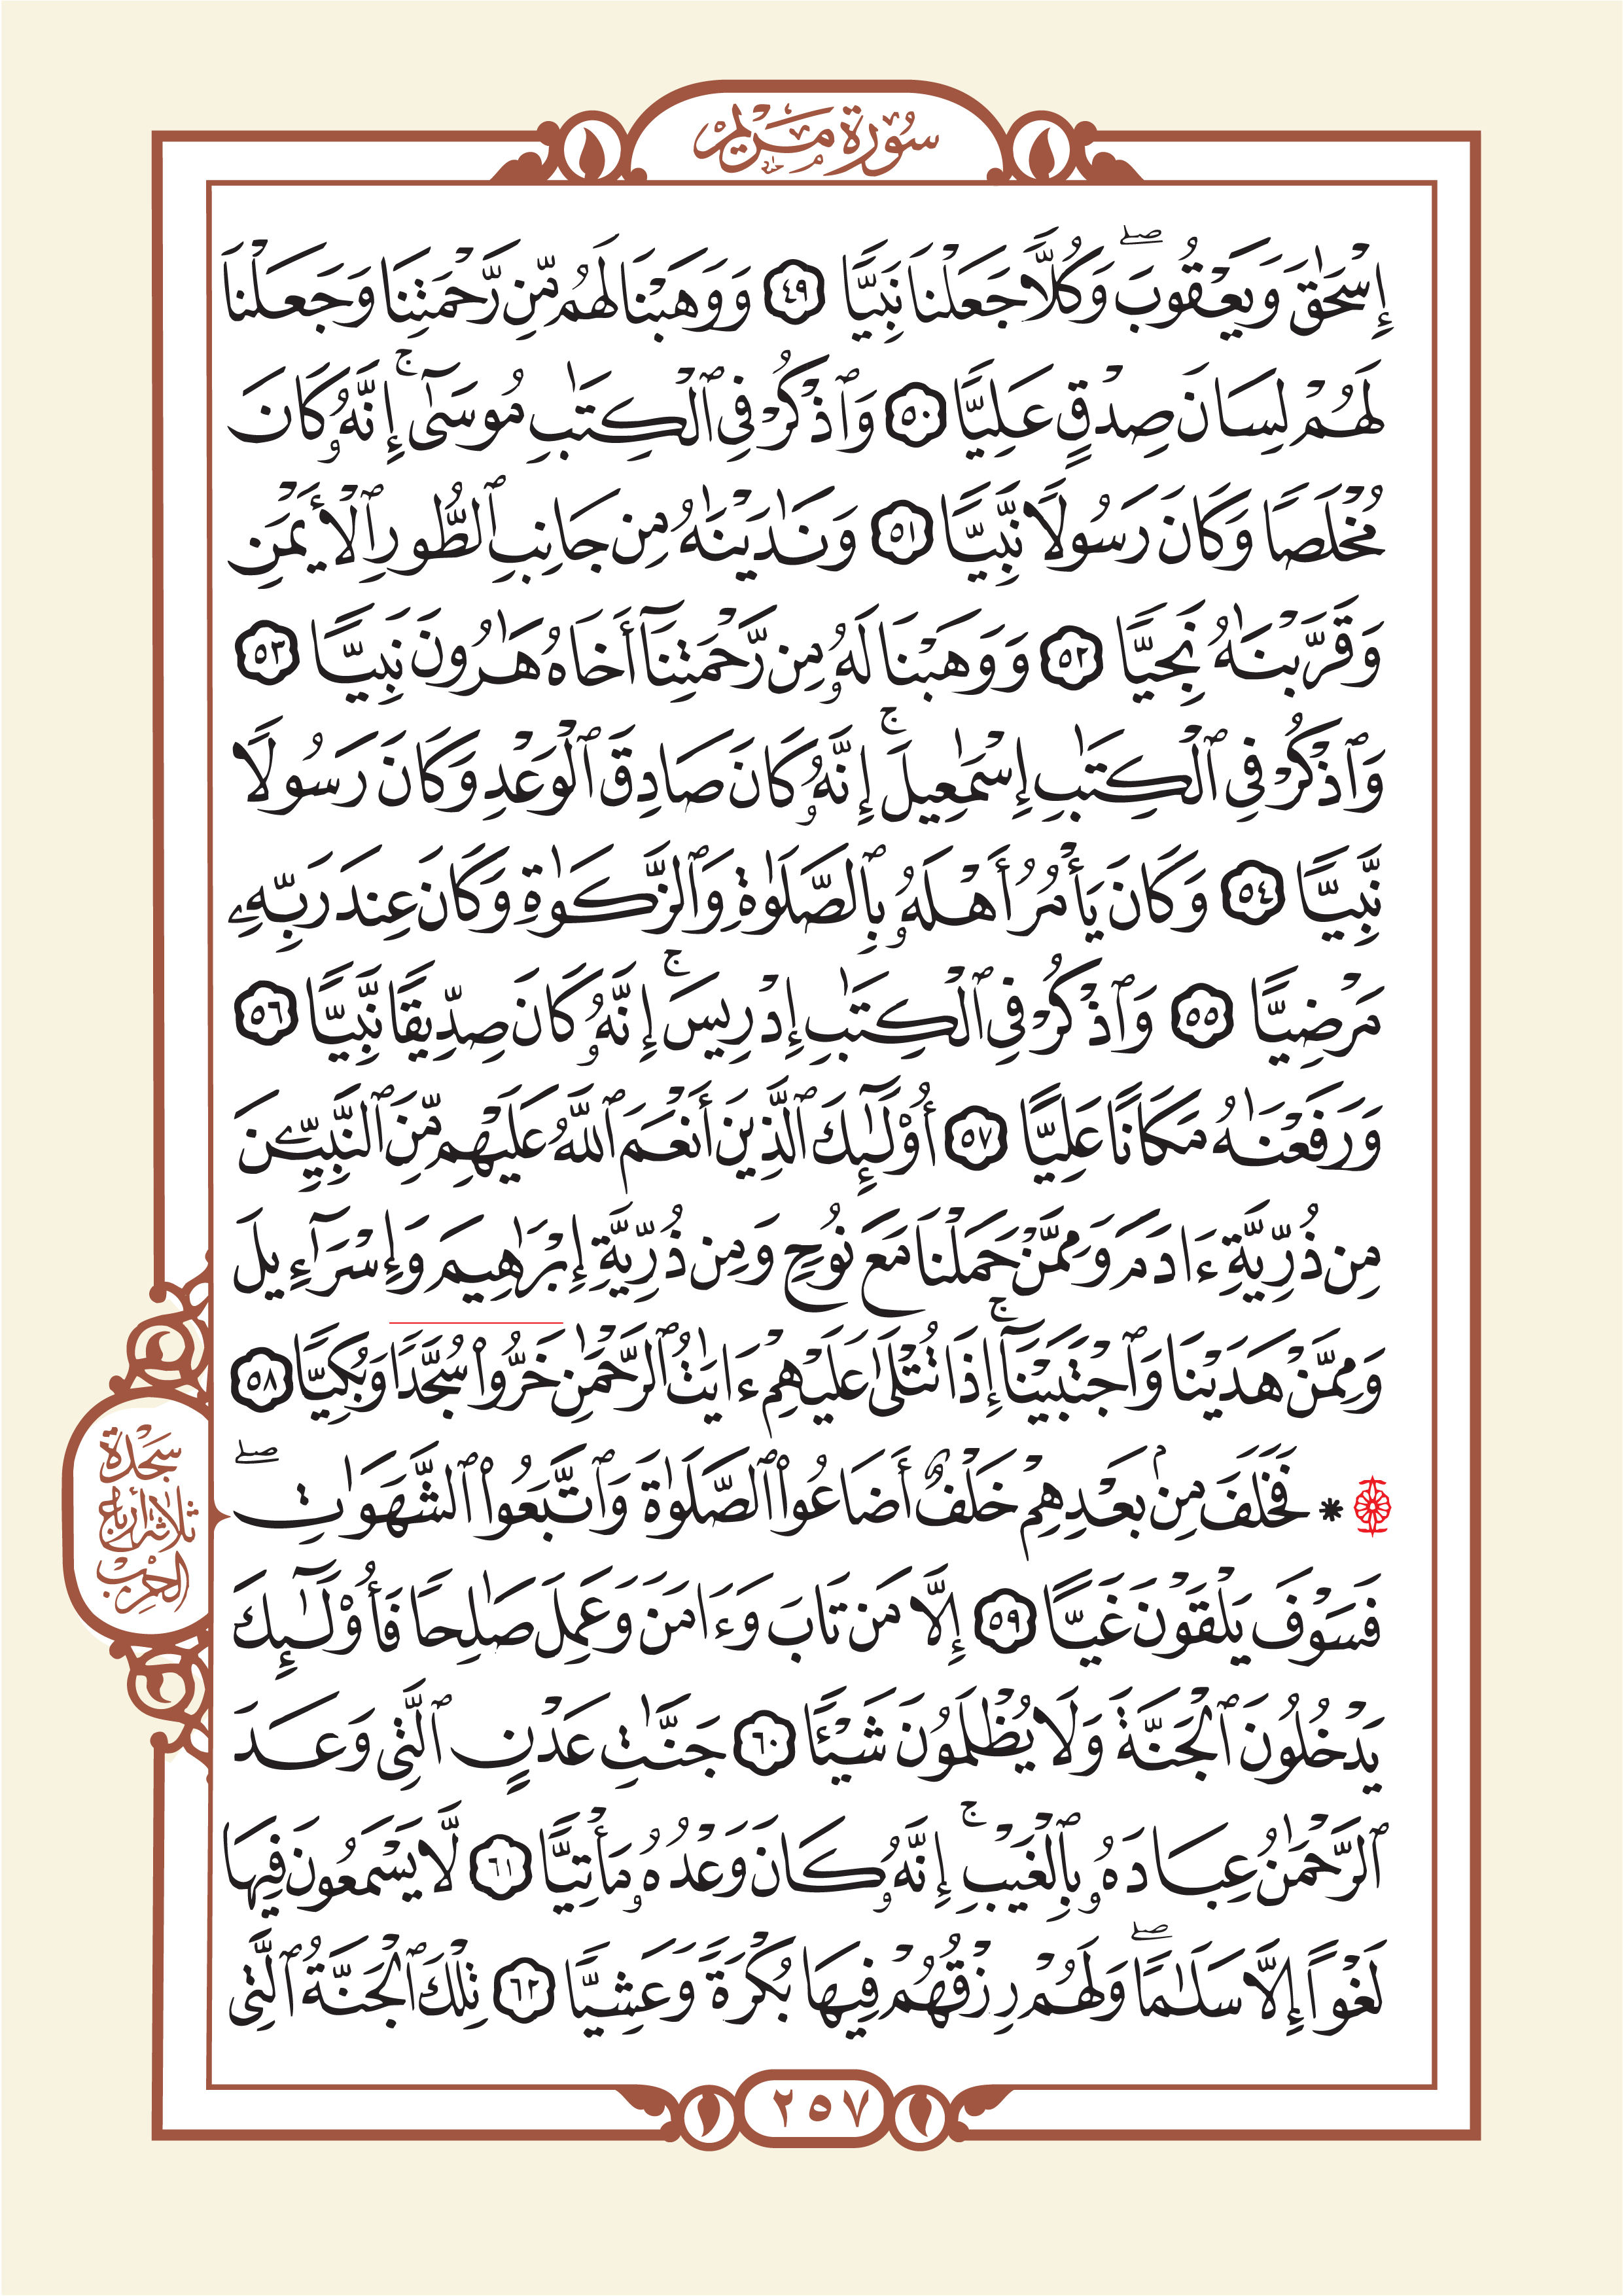 سُورَةُ مَرْيَم
إِسْحَٰقَ وَيَعْقُوبَۖ وَكُلًّا جَعَلْنَا نَبِيًّا ٤٩ وَوَهَبْنَا لَهُم مِّن رَّحْمَتِنَا وَجَعَلْنَا
لَهُمْ لِسَانَ صِدْقٍ عَلِيًّا ٥٠ وَٱذْكُرْ فِى ٱلْكِتَٰبِ مُوسَىٰٓۚ إِنَّهُۥ كَانَ
مُخْلَصًا وَكَانَ رَسُولًا نَّبِيًّا ٥١ وَنَٰدَيْنَٰهُ مِن جَانِبِ ٱلطُّورِ ٱلْأَيْمَنِ
وَقَرَّبْنَٰهُ نَجِيًّا ٥٢ وَوَهَبْنَا لَهُۥ مِن رَّحْمَتِنَآ أَخَاهُ هَٰرُونَ نَبِيًّا ٥٣
وَٱذْكُرْ فِى ٱلْكِتَٰبِ إِسْمَٰعِيلَۚ إِنَّهُۥ كَانَ صَادِقَ ٱلْوَعْدِ وَكَانَ رَسُولًا
نَّبِيًّا ٥٤ وَكَانَ يَأْمُرُ أَهْلَهُۥ بِٱلصَّلَوٰةِ وَٱلزَّكَوٰةِ وَكَانَ عِندَ رَبِّهِۦ
مَرْضِيًّا ٥٥ وَٱذْكُرْ فِى ٱلْكِتَٰبِ إِدْرِيسَۚ إِنَّهُۥ كَانَ صِدِّيقًا نَّبِيًّا ٥٦
وَرَفَعْنَٰهُ مَكَانًا عَلِيًّا ٥٧ أُو۟لَٰٓئِكَ ٱلَّذِينَ أَنْعَمَ ٱللَّهُ عَلَيْهِم مِّنَ ٱلنَّبِيِّـۧنَ
مِن ذُرِّيَّةِ ءَادَمَ وَمِمَّنْ حَمَلْنَا مَعَ نُوحٍ وَمِن ذُرِّيَّةِ إِبْرَٰهِيمَ وَإِسْرَٰٓءِيلَ
وَمِمَّنْ هَدَيْنَا وَٱجْتَبَيْنَآۚ إِذَا تُتْلَىٰ عَلَيْهِمْ ءَايَٰتُ ٱلرَّحْمَٰنِ خَرُّوا۟ سُجَّدًا وَبُكِيًّا ٥٨
* فَخَلَفَ مِنۢ بَعْدِهِمْ خَلْفٌ أَضَاعُوا۟ ٱلصَّلَوٰةَ وَٱتَّبَعُوا۟ ٱلشَّهَوَٰتِۖ
فَسَوْفَ يَلْقَوْنَ غَيًّا ٥٩ إِلَّا مَن تَابَ وَءَامَنَ وَعَمِلَ صَٰلِحًا فَأُو۟لَٰٓئِكَ
يَدْخُلُونَ ٱلْجَنَّةَ وَلَا يُظْلَمُونَ شَيْـًٔا ٦٠ جَنَّٰتِ عَدْنٍ ٱلَّتِى وَعَدَ
ٱلرَّحْمَٰنُ عِبَادَهُۥ بِٱلْغَيْبِۚ إِنَّهُۥ كَانَ وَعْدُهُۥ مَأْتِيًّا ٦١ لَّا يَسْمَعُونَ فِيهَا
لَغْوًا إِلَّا سَلَٰمًاۖ وَلَهُمْ رِزْقُهُمْ فِيهَا بُكْرَةً وَعَشِيًّا ٦٢ تِلْكَ ٱلْجَنَّةُ ٱلَّتِى
سَجْدَة
ثلاثة أرباع
الحزب
٢٥٧